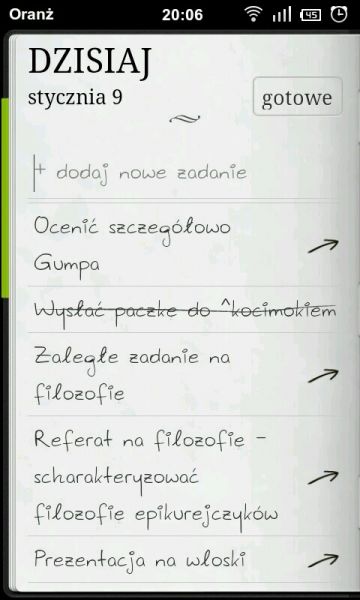 Oranż 20:06 45
DZISIAJ
stycznia 9
gotowe
+ dodaj nowe zadanie
Ocenić szczegółowo
Gumpa
Wysłać paczkę do ^kocimokiem
Zaległe zadanie na
filozofie
Referat na filozofie -
scharakteryzować
filozofie epikurejczyków
Prezentacja na włoski